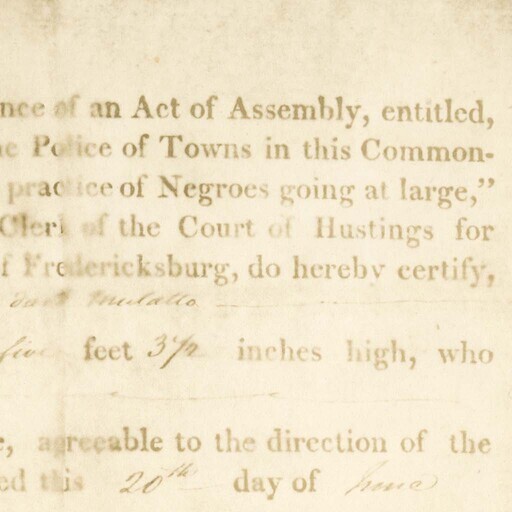 nce of an Act of Assembly, entitled,
e Police of Towns in this Common-
practice of Negroes going at large,”
Clerk of the Court of Hustings for
f Fredericksburg, do hereby certify,
dark mulatto
five feet 3 1/2 inches high, who
e, agreeable to the direction of the
ed this 20th day of June